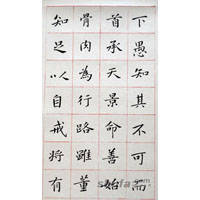 下愚知其不可而
首承天景命善始
骨肉為行路雖董
知足以自戒將有